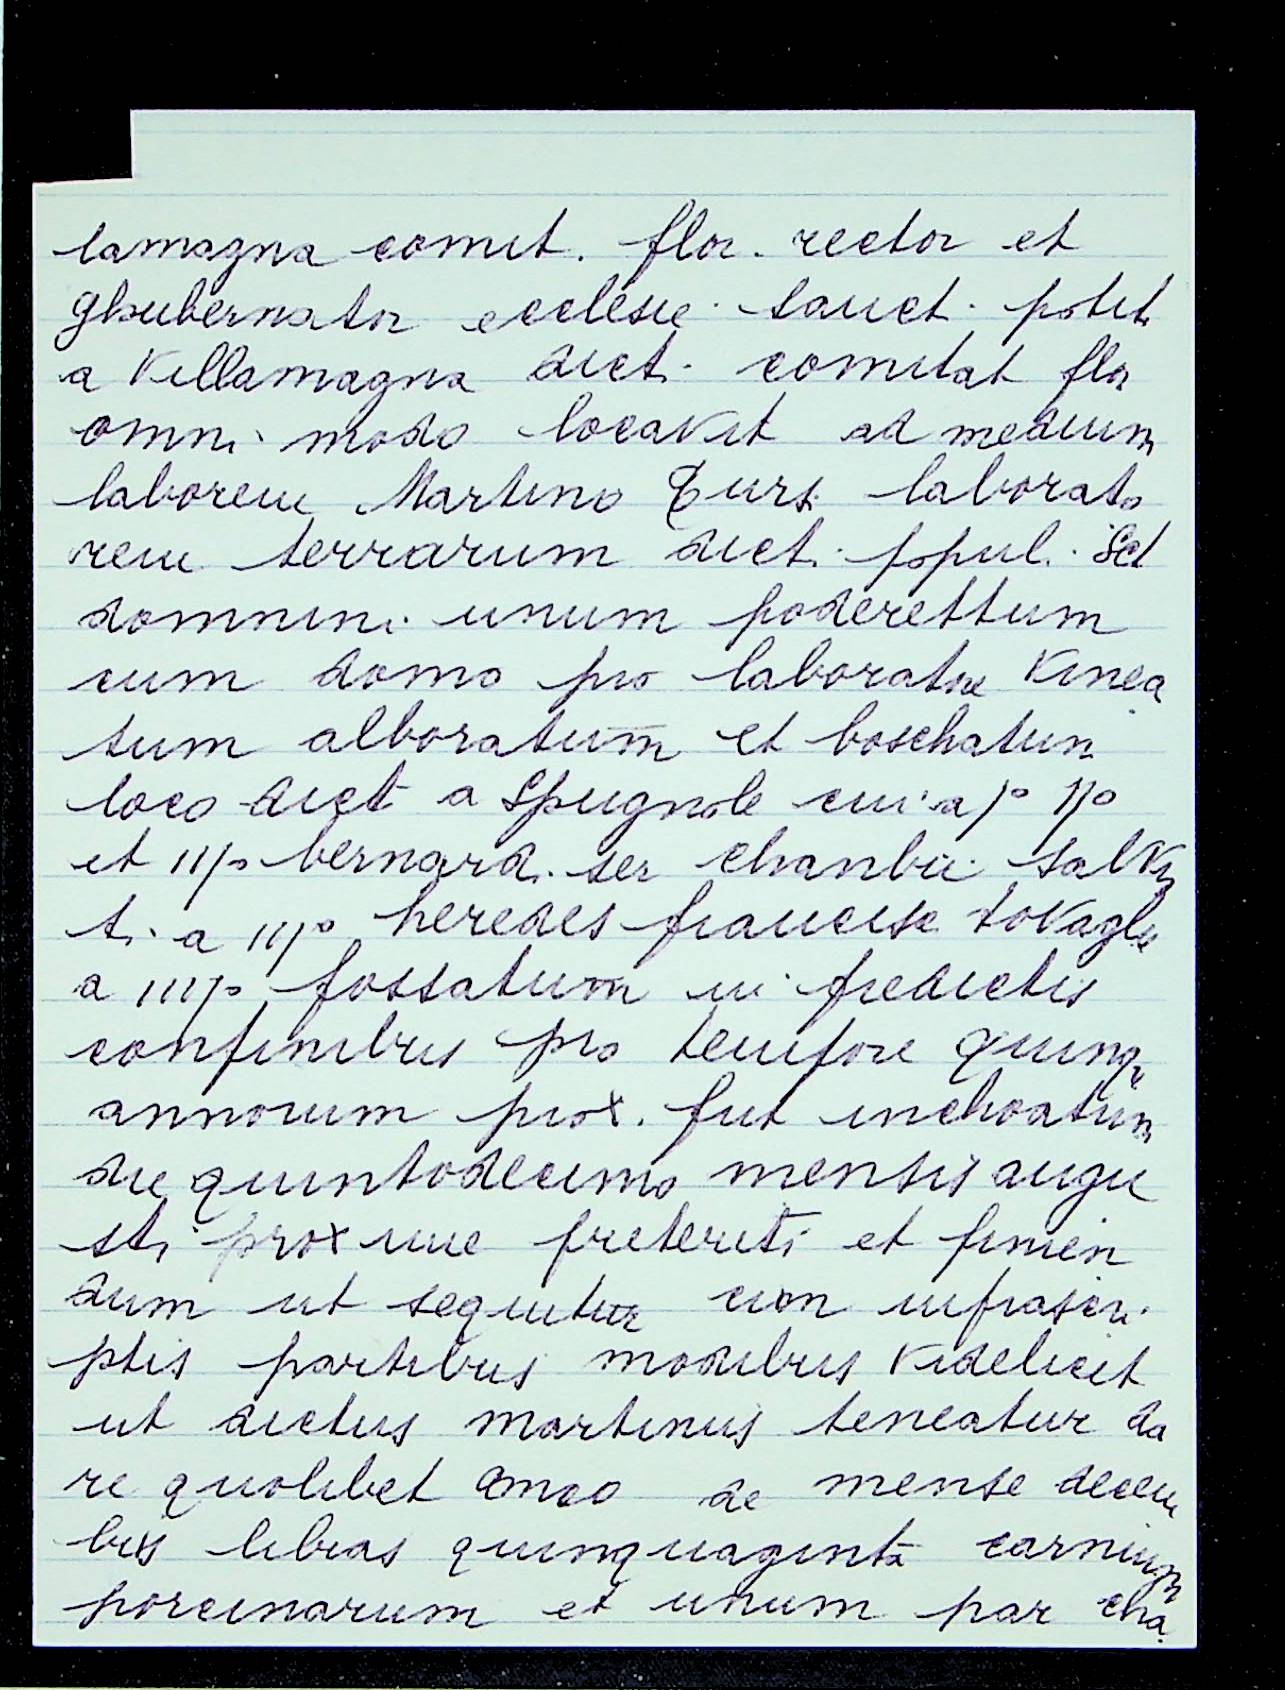 lamagna comit. flor. rector et
ghubernator ecclesie sanct. potit
a Villamagna dict. comitat flor
omni modo locavit ad medium
laborem Martino Gurs. laborato
rem terrarum dict. popul. Sct
domnini unum poderettum
cum domo pro laboratore vinea
tum alboratum et boschatum
loco dict a Spugnole cui a p° ij°
et iij° bernard. ser chanbii salv
ti a iij° heredes francisc tovaglie
a iiij° fossatum in predictis
confinibus pro tempore quinq
annorum prox. fut inchoatum
die quintodecimo mensis augu
sti proxime preteriti et finien
dum ut sequitur cum infrascri
ptis partibus modibus videlicet
ut dictus martinus teneatur da
re quolibet anno de mense decem
bris libras quinquaginta carnium
porcinarum et unum par cha